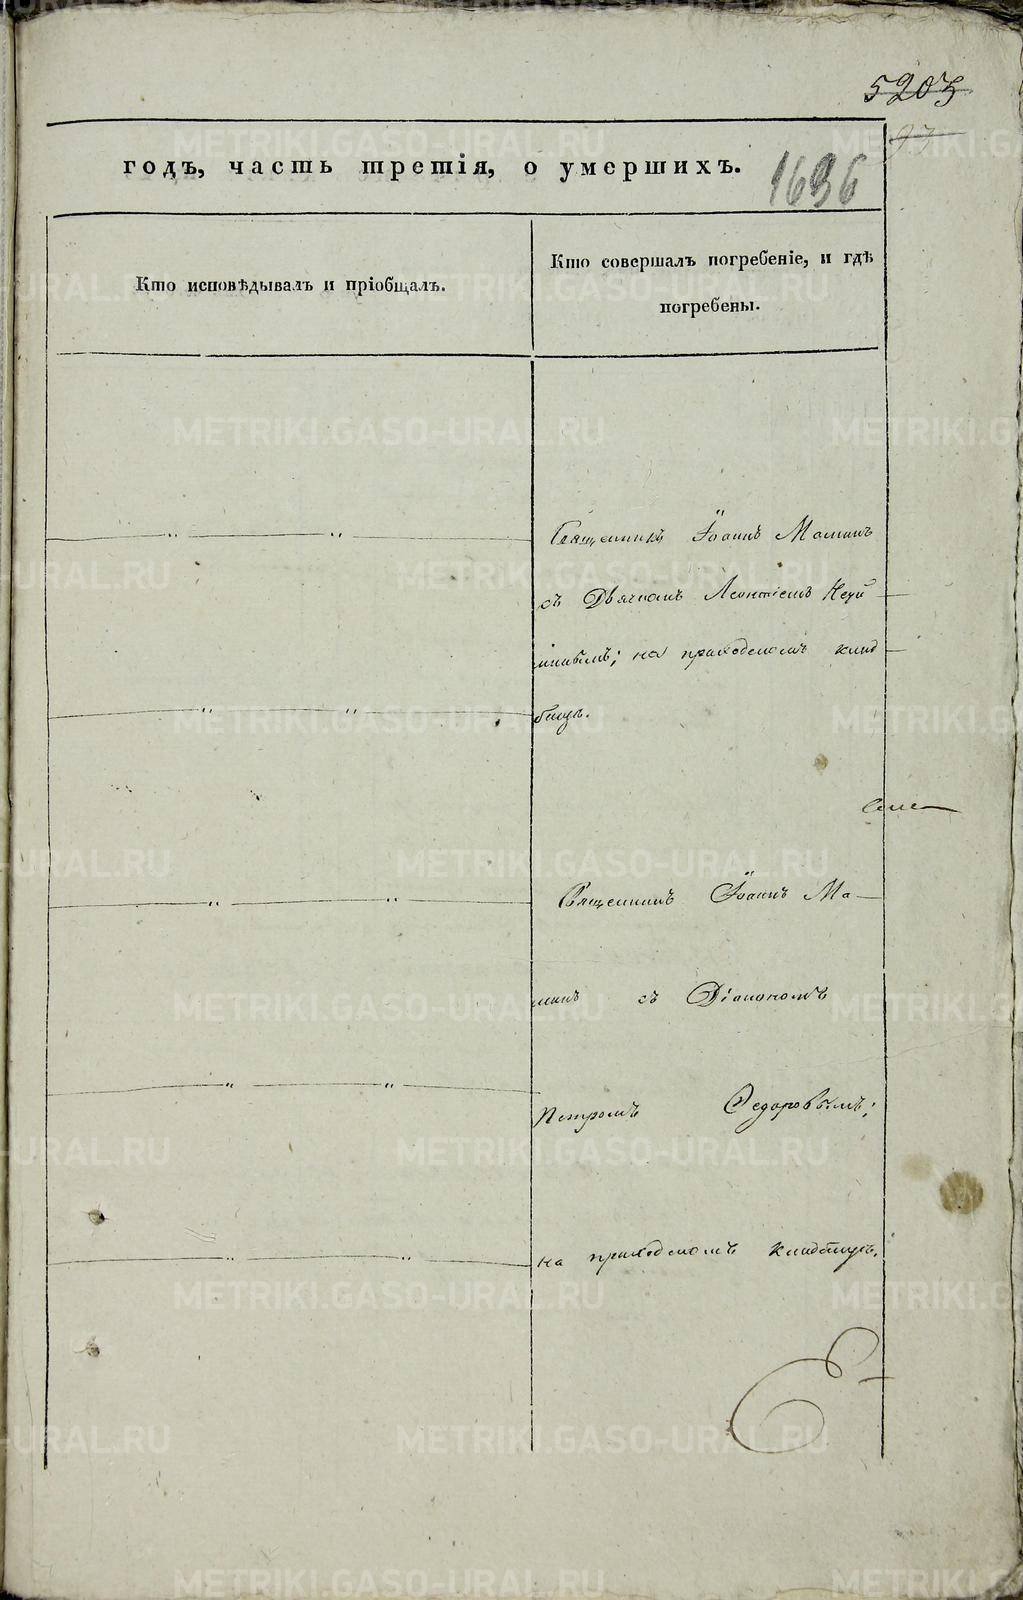 5203
93
годъ, часть третія, о умершихъ.
1636
Кто исповѣдывалъ и пріобщалъ.
Кто совершалъ погребеніе, и гдѣ
погребены.
Священникъ Іоаннъ Маминъ
съ Дьячкомъ Леонтіемъ
на приходскомъ клад
бищѣ.
Священникъ Іоаннъ Ма-
минъ съ Діакономъ
Петромъ Ѳедоровымъ;
на приходскомъ кладбищѣ.
METRIKI.GASO-URAL.RU